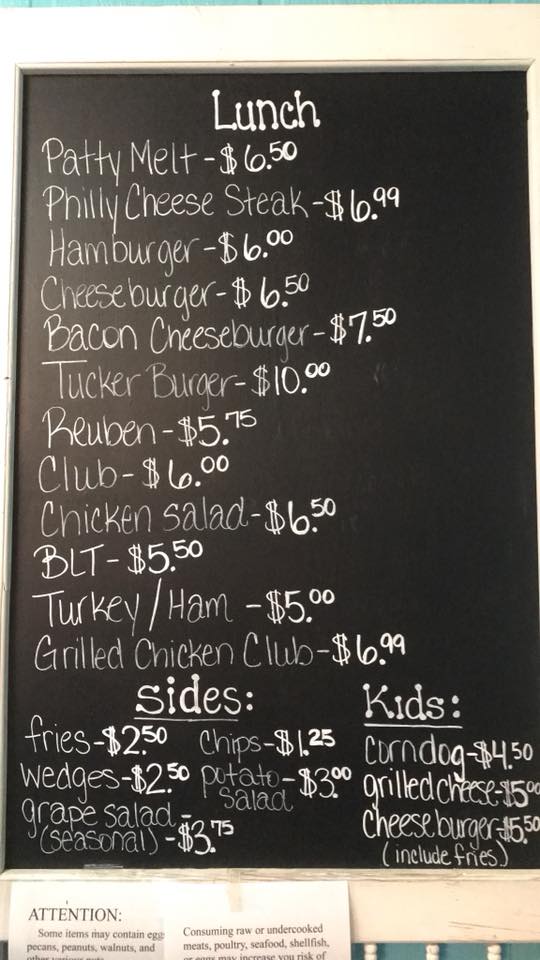 Lunch
Patty Melt - $6.50
Philly Cheese Steak - $6.99
Hamburger - $6.00
Cheeseburger - $6.50
Bacon Cheeseburger - $7.50
Tucker Burger - $10.00
Reuben - $5.75
Club - $6.00
Chicken salad - $6.50
BLT - $5.50
Turkey/Ham - $5.00
Grilled Chicken Club - $6.99
Sides:
fries - $2.50
wedges - $2.50
grape salad -
(seasonal) - $3.75
Chips - $1.25
potato - $3.00
salad
Kids:
corndog - $4.50
grilled cheese - $5.00
cheeseburger - $5.50
(include fries)
ATTENTION:
Some items may contain eggs
pecans, peanuts, walnuts, and
Consuming raw or undercooked
meats, poultry, seafood, shellfish,
or eggs may increase you risk of